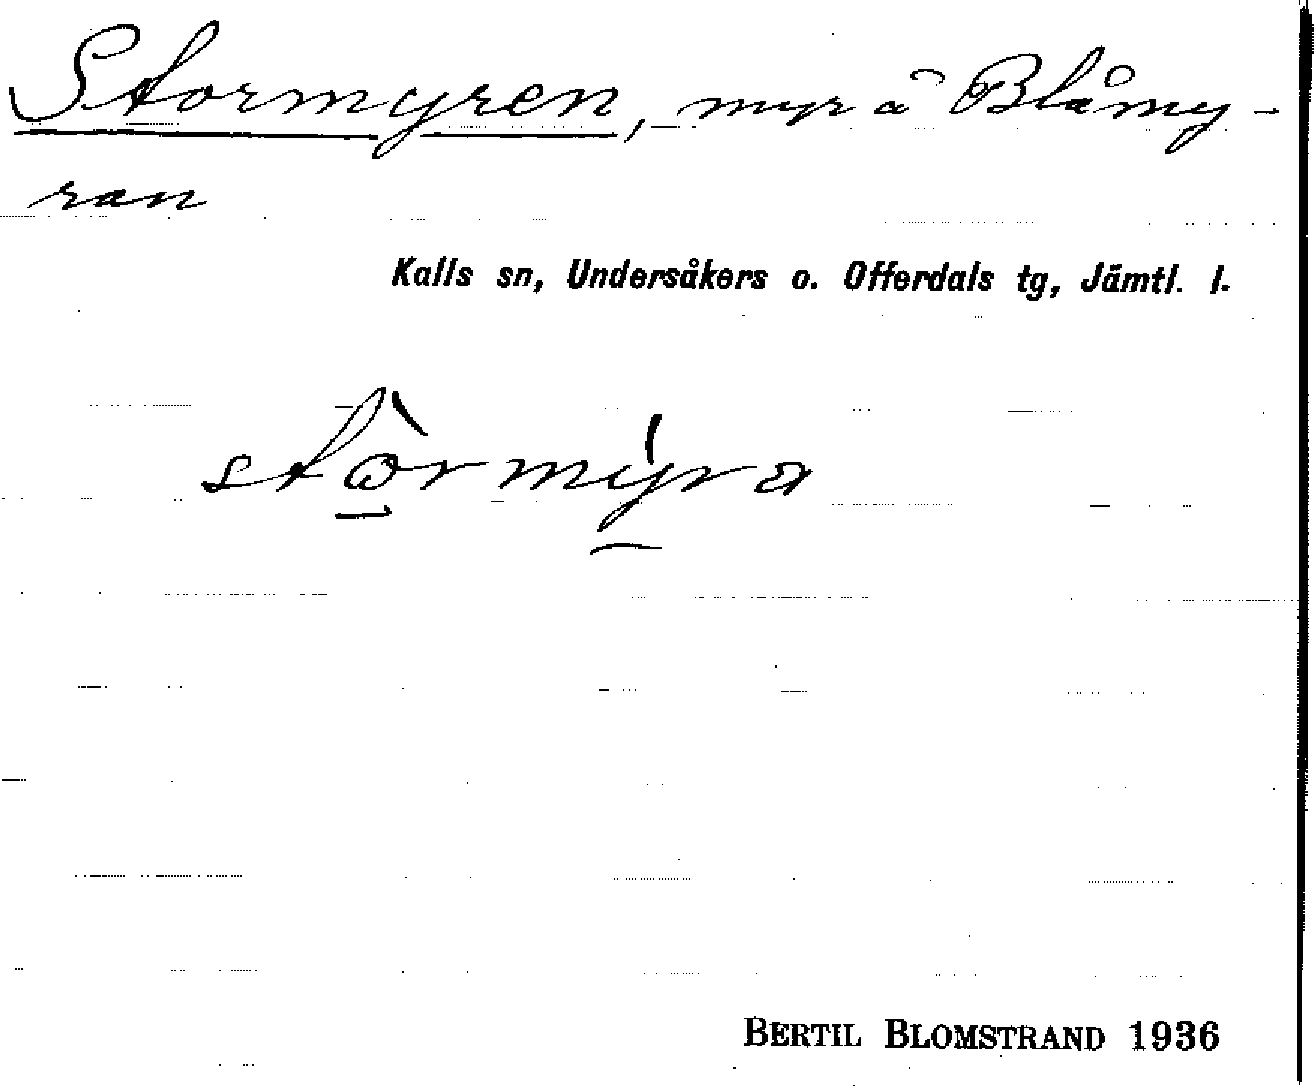 Stormyren, myr å Blåmy-
ran
Kalls sn, Undersåkers o. Offerdals tg, Jämtl. l.
stòrmýra
BERTIL BLOMSTRAND 1936